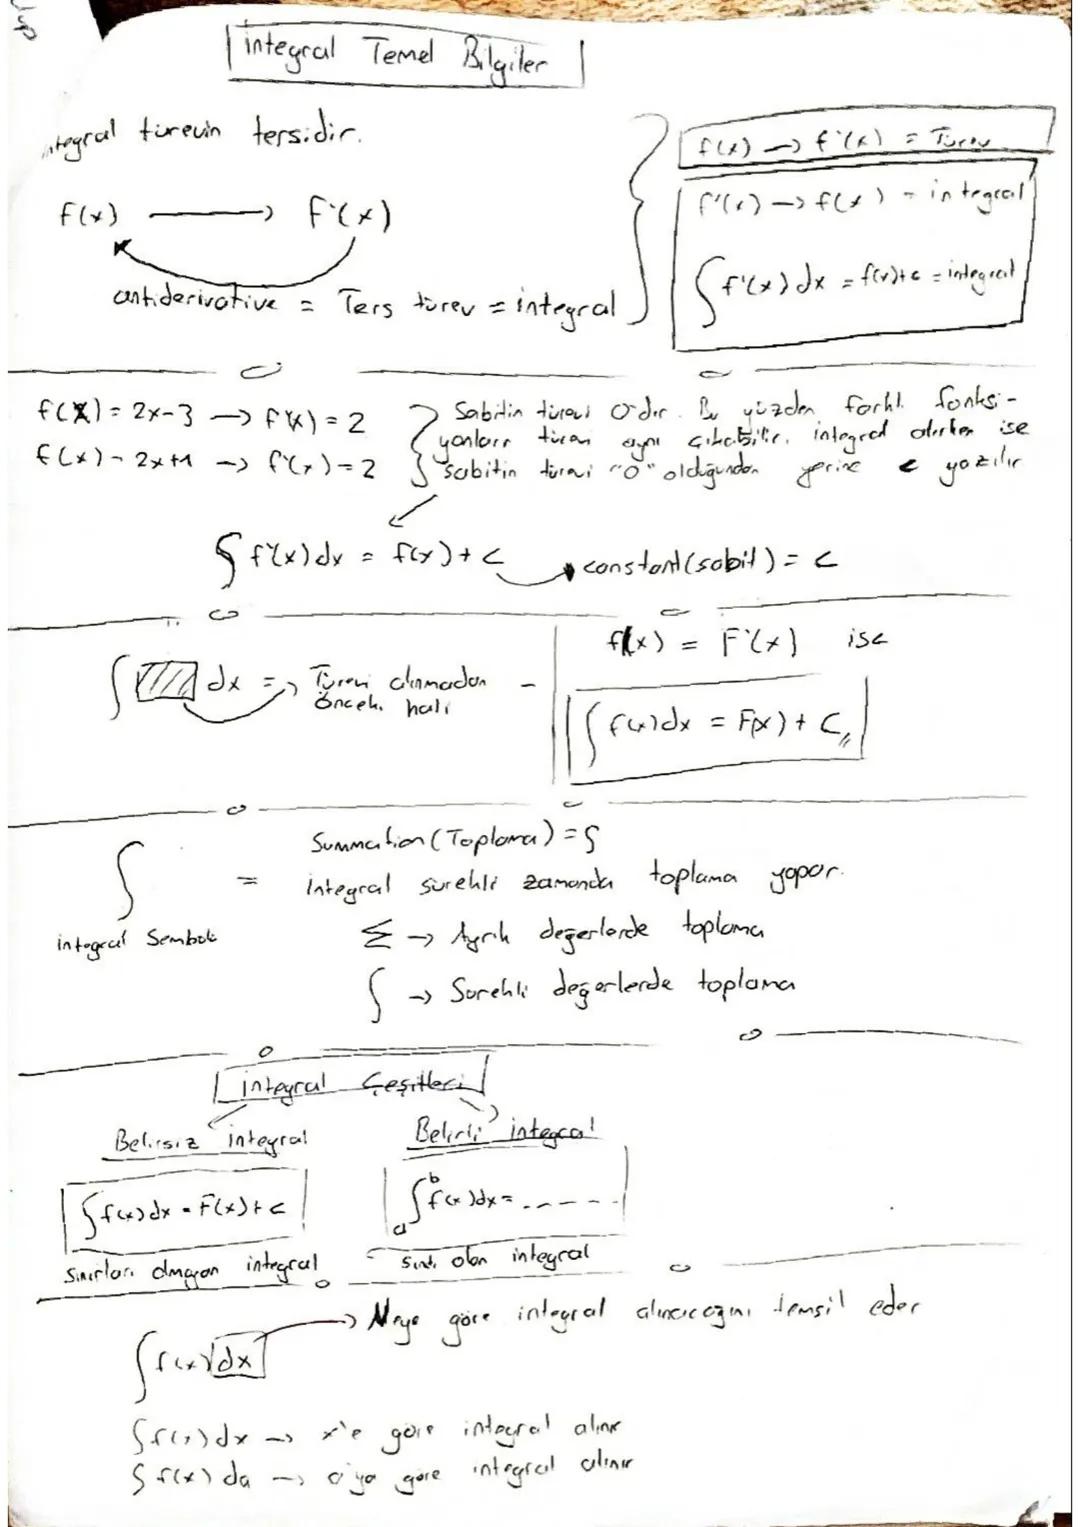 integral Temel Bilgiler
integral türevin tersidir.
f(x) → f'(x)
antiderivative = Ters türev = integral
f(x) → f'(x) = Türev
f'(x) → f(x) = integral
∫ f'(x) dx = f(x)+c = integral
f(x) = 2x-3 → f'(x) = 2
f(x) = 2x+1 → f'(x) = 2
Sabitin türevi 0'dır. Bu yüzden farklı fonksi-
yonların türevi aynı çıkabilir. integral alırken ise
sabitin türevi "0" olduğundan yerine c yazılır
∫ f'(x) dx = f(x) + c → constant (sabit) = c
∫ dx = → Türevi alınmadan
önceki hali
f(x) = F'(x) ise
∫ f(x) dx = F(x) + C
∫ = Summation (Toplama) = S
integral sürekli zamanda toplama yapar.
integral Sembolü
Σ → Ayrık değerlerde toplama
∫ → Sürekli değerlerde toplama
integral Çeşitleri
Belirsiz integral
∫ f(x) dx = F(x) + c
Sınırları olmayan integral
Belirli integral
∫ₐᵇ f(x) dx = ........
sınırı olan integral
∫ f(x) dx → Neye göre integral alınacağını temsil eder
∫ f(x) dx → x'e göre integral alınır
∫ f(x) da → a'ya göre integral alınır